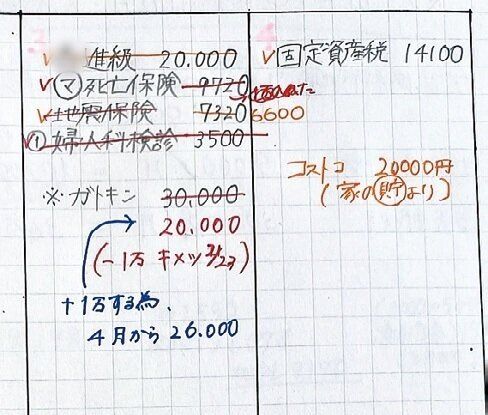 3
進級 20.000
✓㋮死亡保険 9720
✓地震保険 7320 6600
✓①婦人科検診 3500
※ガトキン 30.000
20.000
(-1万 キメツ 3/23)
+1万する為、
4月から 26.000
4
✓固定資産税 14100
コストコ 20000円
(家の貯より)